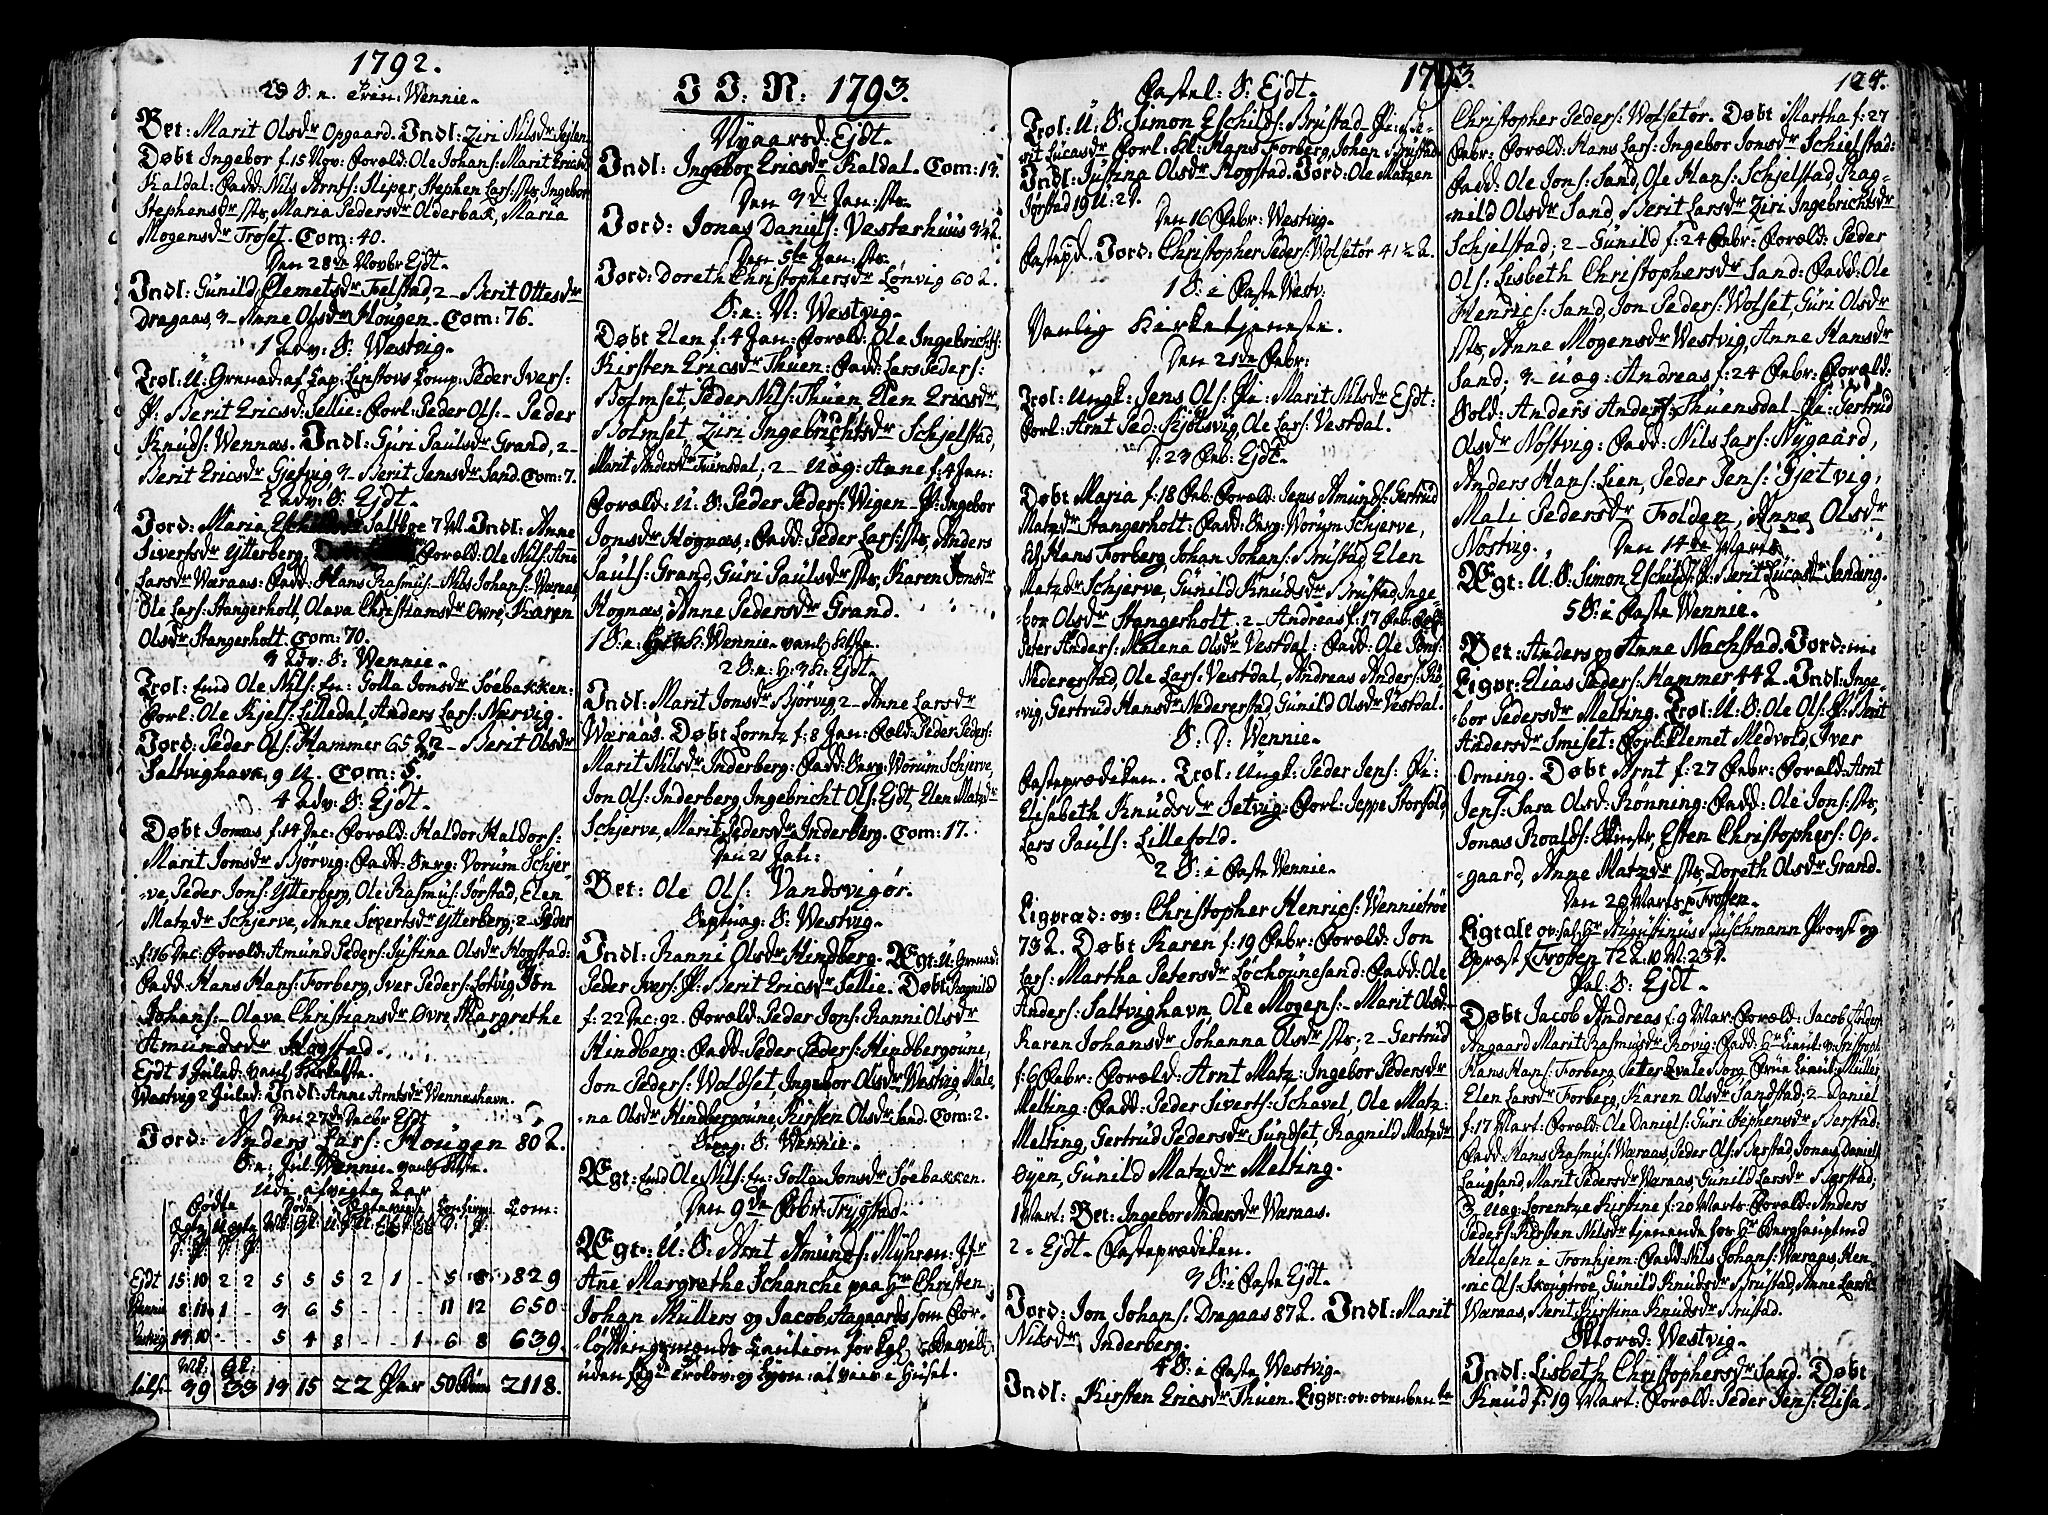 1792.
25 S. e. Trin: Wennie.
Bet: Marit Olsdr Opgaard. Indl: Ziri Nilsdr
Døbt Ingebor f. 15 Nov: Foræld: Ole Johans: Marit Ericsdr
Kaldal: Fadd: Nils Arnts: Stephen Lars: sts, Ingebor
Stephensdr sts, Maria Pedersdr Olderbak, Maria
Mogensdr Troset. Com: 40.
Den 28de Novbr Ejdt.
Indl: Gunild Clemetsdr Felstad, 2 – Berit Ottesdr
Dragaas, 3 – Anne Olsdr Hougen. Com: 76.
1 Adv: S: Westvig.
Trol: U: Grenad: af Cap: Linstovs Comp: Peder Ivers:
P: Berit Ericsd: Sellie: Forl: Peder Ols: – Peder
Knuds: Wennæs. Indl: Guri Paulsdr Grand, 2 –
Berit Ericsdr Gjetvig, 3 – Berit Jensdr Sand. Com: 7.
2 Adv: S: Ejdt.
Jord: Maria Saltboe 7 U. Indl: Anne
Siversdr Ytterberg, Foræld: Ole Nils: Anne
Larsdr Væraas: Fadd: Hans Rasmus: – Nils Johans: Væraas
Ole Lars: Stangerholt, Olava Christiansdr Ovre, Karen
Olsdr Stangerholt. Com: 70.
3 Adv: S: Wennie.
Trol: Emd Ole Nils: En: Golla Jonsdr Søebakken:
Forl: Ole Kjels: Lilledal, Anders Lars: Nærvig.
Jord: Peder Ols: Hammer 65 2 – Berit Olsdr
Saltvighavn, 9 U. Com: 5.
4 Adv: S: Ejdt.
Døbt Jonas f. 14 Dec: Foræld: Haldor Haldors:
Marit Jonsdr Bjørvig: Fadd: Serg: Vorum Schjer-
ve, Peder Jons: Ytterberg, Ole Rasmus: Jørstad, Elen
Matzdr Schjerve, Anne Sivertsdr Ytterberg; 2 – Peder
f: 16 Dec: Foræld: Amund Peders: Justina Olsdr Hogstad:
Fadd: Hans Hans: Forberg, Iver Peders: Jon
Johans: – Olava Christiansdr Ovre, Margrethe
Amundsdr Hogstad.
Ejdt 1 Juled:
Westvig 2 Juled: Indl: Anne Arntsdr Wenneshavn.
Den 27de Decbr Ejdt
Jord: Anders Lars: Hougen 80
S. e: Jul: Wennie
Udi afvigte Aar
Fødte Døde Confirm: Com:
Ægte Uægte
Ejdt 15 10 2 2 5 5 5 2 1 - 5 8 829
8 11 1 - 3 6 5 - - - 11 12 650
14 10 - - 5 4 8 - - 1 6 8 639
39 33 13 15 22 Par 50 Børn 2118.

I J. N: 1793.
Nyaarsd: Ejdt.
Indl: Ingebor Ericsdr Kaldal. Com: 13.
Den 3de Jan: sts.
Jord: Jonas Daniels: Vesterhuus
Den 5te Jan: sts.
Jord: Doreth Christophersdr Lonvig 60
S. e: N: Westvig.
Døbt Elen f: 4 Jan: Foræld: Ole Ingebrichts:
Kirsten Ericsdr Thuen: Fadd: Lars Peders:
Holmset, Peder Nils: Thuen Elen Ericsdr
Holmset, Ziri Ingebrichtsdr Schjelstad,
Marit Andersdr Tuinsdal; 2 – Uæg: Anne f: 4 Jan:
Foræld: U: S: Peder Peders: Wigen P: Ingebor
Jonsdr Hognæs: Fadd: Peder Lars: sts, Anders
Pauls: Grand, Guri Paulsdr sts, Karen Jonsdr
Hognæs, Anne Pedersdr Grand.
1 S. e: Wennie
2 S. e: H: 3 K: Ejdt.
Indl: Marit Jonsdr Bjørvig 2 – Anne Larsdr
Væraas. Døbt Lorntz f: 8 Jan: Foræld: Peder Peders:
Marit Nilsdr Inderberg: Fadd: Serg: Worum Schjerve,
Jon Ols: Inderberg, Ingebricht Ols: Ejdt, Elen Matzdr
Schjerve, Marit Pedersdr Inderberg. Com: 17.
Den 21 Jan:
Bet: Ole Ols: Vandsvigør.
Septuag: S: Westvig.
Indl: Ranni Olsdr Hindberg. Ægt: U: Grenad:
Peder Ivers: P: Berit Ericsdr Sellie. Døbt Ragnild
f: 22 Dec: 92. Foræld: Peder Jons: Ranni Olsdr
Hindberg: Fadd: Peder Peders: Hindbergoune,
Jon Peders: Woldset, Ingebor Olsdr Westvig, Male-
na Olsdr Hindbergoune, Kirsten Olsdr Sand. Com: 2.
Sexag: S: Wennie.
Ægt: Emd Ole Nils: En: Golla Jonsdr Søebakken.
Den 9de Febr: Trygstad.
Ægt: U: S: Arnt Amunds: Myhren: Jfr
Anne Margretha Schanche paa Hr Christen
Johan Müllers og Jacob Aagaards, som For-
-lovningsmænds Caution for Kgl: Bevill:
uden foregd Trolov: og Lysn: at vies i Huset.

1793.
Fastel: S: Ejdt.
Trol: U: S: Simon Eschilds: Brustad – Pi: Be-
rit Lucasdr Forl: Hans Forberg, Johan Brustad
Indl: Justina Olsdr Hogstad. Jord: Ole Matzen
Jørstad 19 U: 2 D.
Den 16 Febr: Westvig.
Fastepd. Jord: Christopher Peders: Wolsetør 41 ½
1 S: i Faste Westv:
Vanlig Kirketjeneste.
Den 21de Febr:
Trol: Ungk: Jens Ols: Pi: Marit Nilsdr Ejdt:
Forl: Arnt Ped: Kjølsvig, Ole Lars: Vestdal.
D: 23 Feb: Ejdt.
Døbt Maria f: 18 Feb: Foræld: Jens Amunds: Gertrud
Matzdr Stangerholt: Fadd: Serg: Worum Schjerve,
Hans Forberg, Johan Johans: Brustad, Elen
Matzdr Schjerve, Gunild Knudsdr Brustad, Inge-
bor Olsdr Stangerholt. 2 – Andreas f: 17 Feb: Foræld:
Peter Anders: Malena Olsdr Vestdal: Fadd: Ole Jons:
Nedererstad, Ole Lars: Vestdal, Andreas Anders: Ro-
-vig, Gertrud Hansdr Nedererstad, Gunild Olsdr Vestdal.
S: D: Wennie.
Fasteprædiken. Trol: Ungk: Peder Jens: Pi:
Elisabeth Knudsdr Jetvig: Forl: Jeppe Storfold,
Lars Pauls: Lillefold.
2 S: i Faste Wennie.
Ligpræd: ov: Christopher Henrics: Wennietrøe
73. Døbt Karen f: 19 Febr: Foræld: Jon
Lars: Martha Petersdr Lochounesand: Fadd: Ole
Anders: Saltvighavn, Ole Mogens: – Marit Olsdr
Karen Johansdr Johanna Olsdr sts; 2 – Gertrud
f: 6 Febr: Foræld: Arnt Matz: Ingebor Pedersdr
Melting: Fadd: Peder Siverts: Schavel, Ole Matz:
Melting, Gertrud Pedersdr Sundset, Ragnild Matzdr
Øyen, Gunild Matzdr Melting.
1 Mart: Bet: Ingebor Andersdr Væraas.
2 – Ejdt. Fasteprædiken.
3 S: i Faste Ejdt.
Jord: Jon Johans: Dragaas 87. Indl: Marit
Nilsdr Inderberg.
4 S: i Faste Westvig.
Indl: Kirsten Ericsdr Thuen. Ligpr: ov: ovenben:te

124.
Christopher Peders: Wolsetør. Døbt Martha f: 27
Febr: Foræld: Hans Lars: Ingebor Jonsdr Schielstad:
Fadd: Ole Jons: Sand, Ole Hans: Schjelstad, Rag-
nild Olsdr Sand, Berit Larsdr Ziri Ingebrichtsdr
Schjelstad; 2 – Gunild f: 24 Febr: Foræld: Peder
Ols: Lisbeth Christophersdr Sand: Fadd: Ole
Henrics: Sand, Jon Peders: Wolset, Guri Olsdr
sts, Anne Mogensdr Westvig, Anne Hansdr
Sand; 3 – Uæg: Andreas f: 24 Febr: Foræld:
Sold: Anders Anders: Thuensdal – Pi: Gertrud
Olsdr Nostvig: Fadd: Nils Lars: Nygaard,
Anders Hans: Lien, Peder Jens: Gjetvig,
Mali Pedersdr Folden, Anne Olsdr
Nostvig. Den 14de Marts
Ægt: U: S: Simon Eschilds: P: Berit Lucasdr Sandeng.
5 S: i Faste Wennie.
Bet: Anders og Anne Nachstad. Jord: m:
Ligpr: Elias Peders: Hammer 44. Indl: Inge-
bor Pedersdr Melting. Trol: U: S: Ole Ols: P: Berit
Andersdr Smiset: Forl: Clemet Medvold, Iver
Orning. Døbt Arnt f: 27 Febr: Foræld: Arnt
Jens: Sara Olsd: Rønning: Fadd: Ole Jons: sts,
Jonas Roalds: Esten Christophers: Op-
-gaard, Anne Matzdr sts, Doreth Olsdr Grand.
Den 20 Marts Frosten.
Ligtale ov: sal: Hr Augustinus Buschmann Provst og
Spræst t: Frosten 72 10 M: 23 D.
Pal: S: Ejdt.
Døbt Jacob Andreas f: 9 Mar: Foræld: Jacob Anders:
Aagaard Marit Rasmusdr Rovig: Fadd: Hr Lieut:
Hans Hans: Forberg, Peter Qvale Borg Müller
Elen Larsdr Forberg, Karen Olsdr Sandstad; 2 – Daniel
f: 17 Mart: Foræld: Ole Daniels: Guri Stephensdr Berstad:
Fadd: Hans Rasmus: Væraas, Peder Ols: Berstad, Jonas Daniels:
Laugsand, Marit Pedersdr Væraas, Gunild Larsdr Berstad;
3, Uæg: Lorentze Kirstine f: 20 Marts: Foræld: Anders
Peders: Kirsten Nilsdr tjenende hos Hr Berghauptmd
Hellesen i Tronhjem: Fadd: Nils Johans: Væraas, Hen-
ric Ols: Skovstrøe, Gunild Knudsdr Brustad, Anne Larsdr
Væraas, Berit Kirstina Knudsdr Brustad.
Skiørsd: Westvig.
Indl: Lisbeth Christophersdr Sand. Døbt
Knud f: 19 Mart: Foræld: Peder Jens: Elisa-